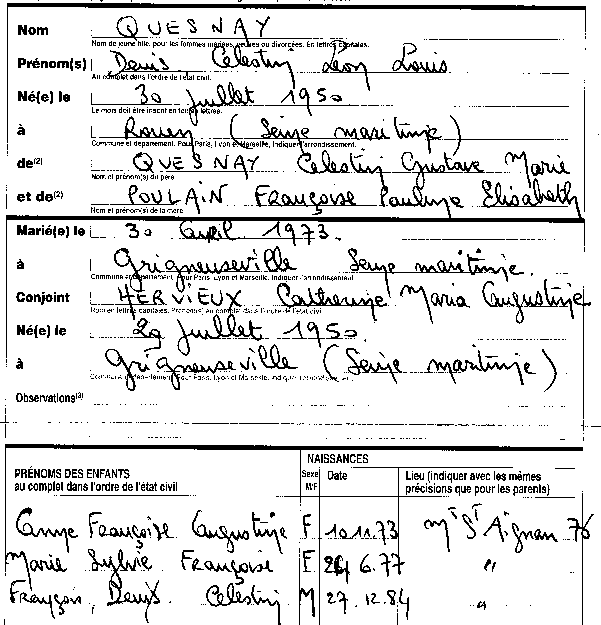 Nom QUESNAY
Nom de jeune fille, pour les femmes mariées, veuves ou divorcées. En lettres capitales.
Prénom(s) Denis Celestin Léon Louis
Au complet dans l'ordre de l'état civil.
Né(e) le 30 Juillet 1950
Le mois doit être inscrit en toutes lettres.
à Rouen (Seine maritime)
Commune et département. Pour Paris, Lyon et Marseille, indiquer l'arrondissement.
de(2) QUESNAY Celestin Gustave Marie
Nom et prénom(s) du père
et de(2) POULAIN Françoise Pauline Elisabeth
Nom et prénom(s) de la mère
Marié(e) le 30 Avril 1973.
à Grigneuseville Seine maritime.
Commune et département. Pour Paris, Lyon et Marseille, indiquer l'arrondissement
Conjoint HERVIEUX Catherine Maria Augustine
Nom en lettres capitales. Prénom(s) au complet dans l'ordre de l'état civil
Né(e) le 29 Juillet 1950
à Grigneuseville (Seine maritime)
Commune et département. Pour Paris, Lyon et Marseille, indiquer l'arrondissement.
Observations(3)
NAISSANCES
PRÉNOMS DES ENFANTS
au complet dans l'ordre de l'état civil
Sexe M/F
Date
Lieu (indiquer avec les mêmes précisions que pour les parents)
Anne Françoise Augustine F 10.11.73 Mt St Aignan 76
Marie Sylvie Françoise F 24 6.77 "
François, Denis Celestin M 27.12.84 "